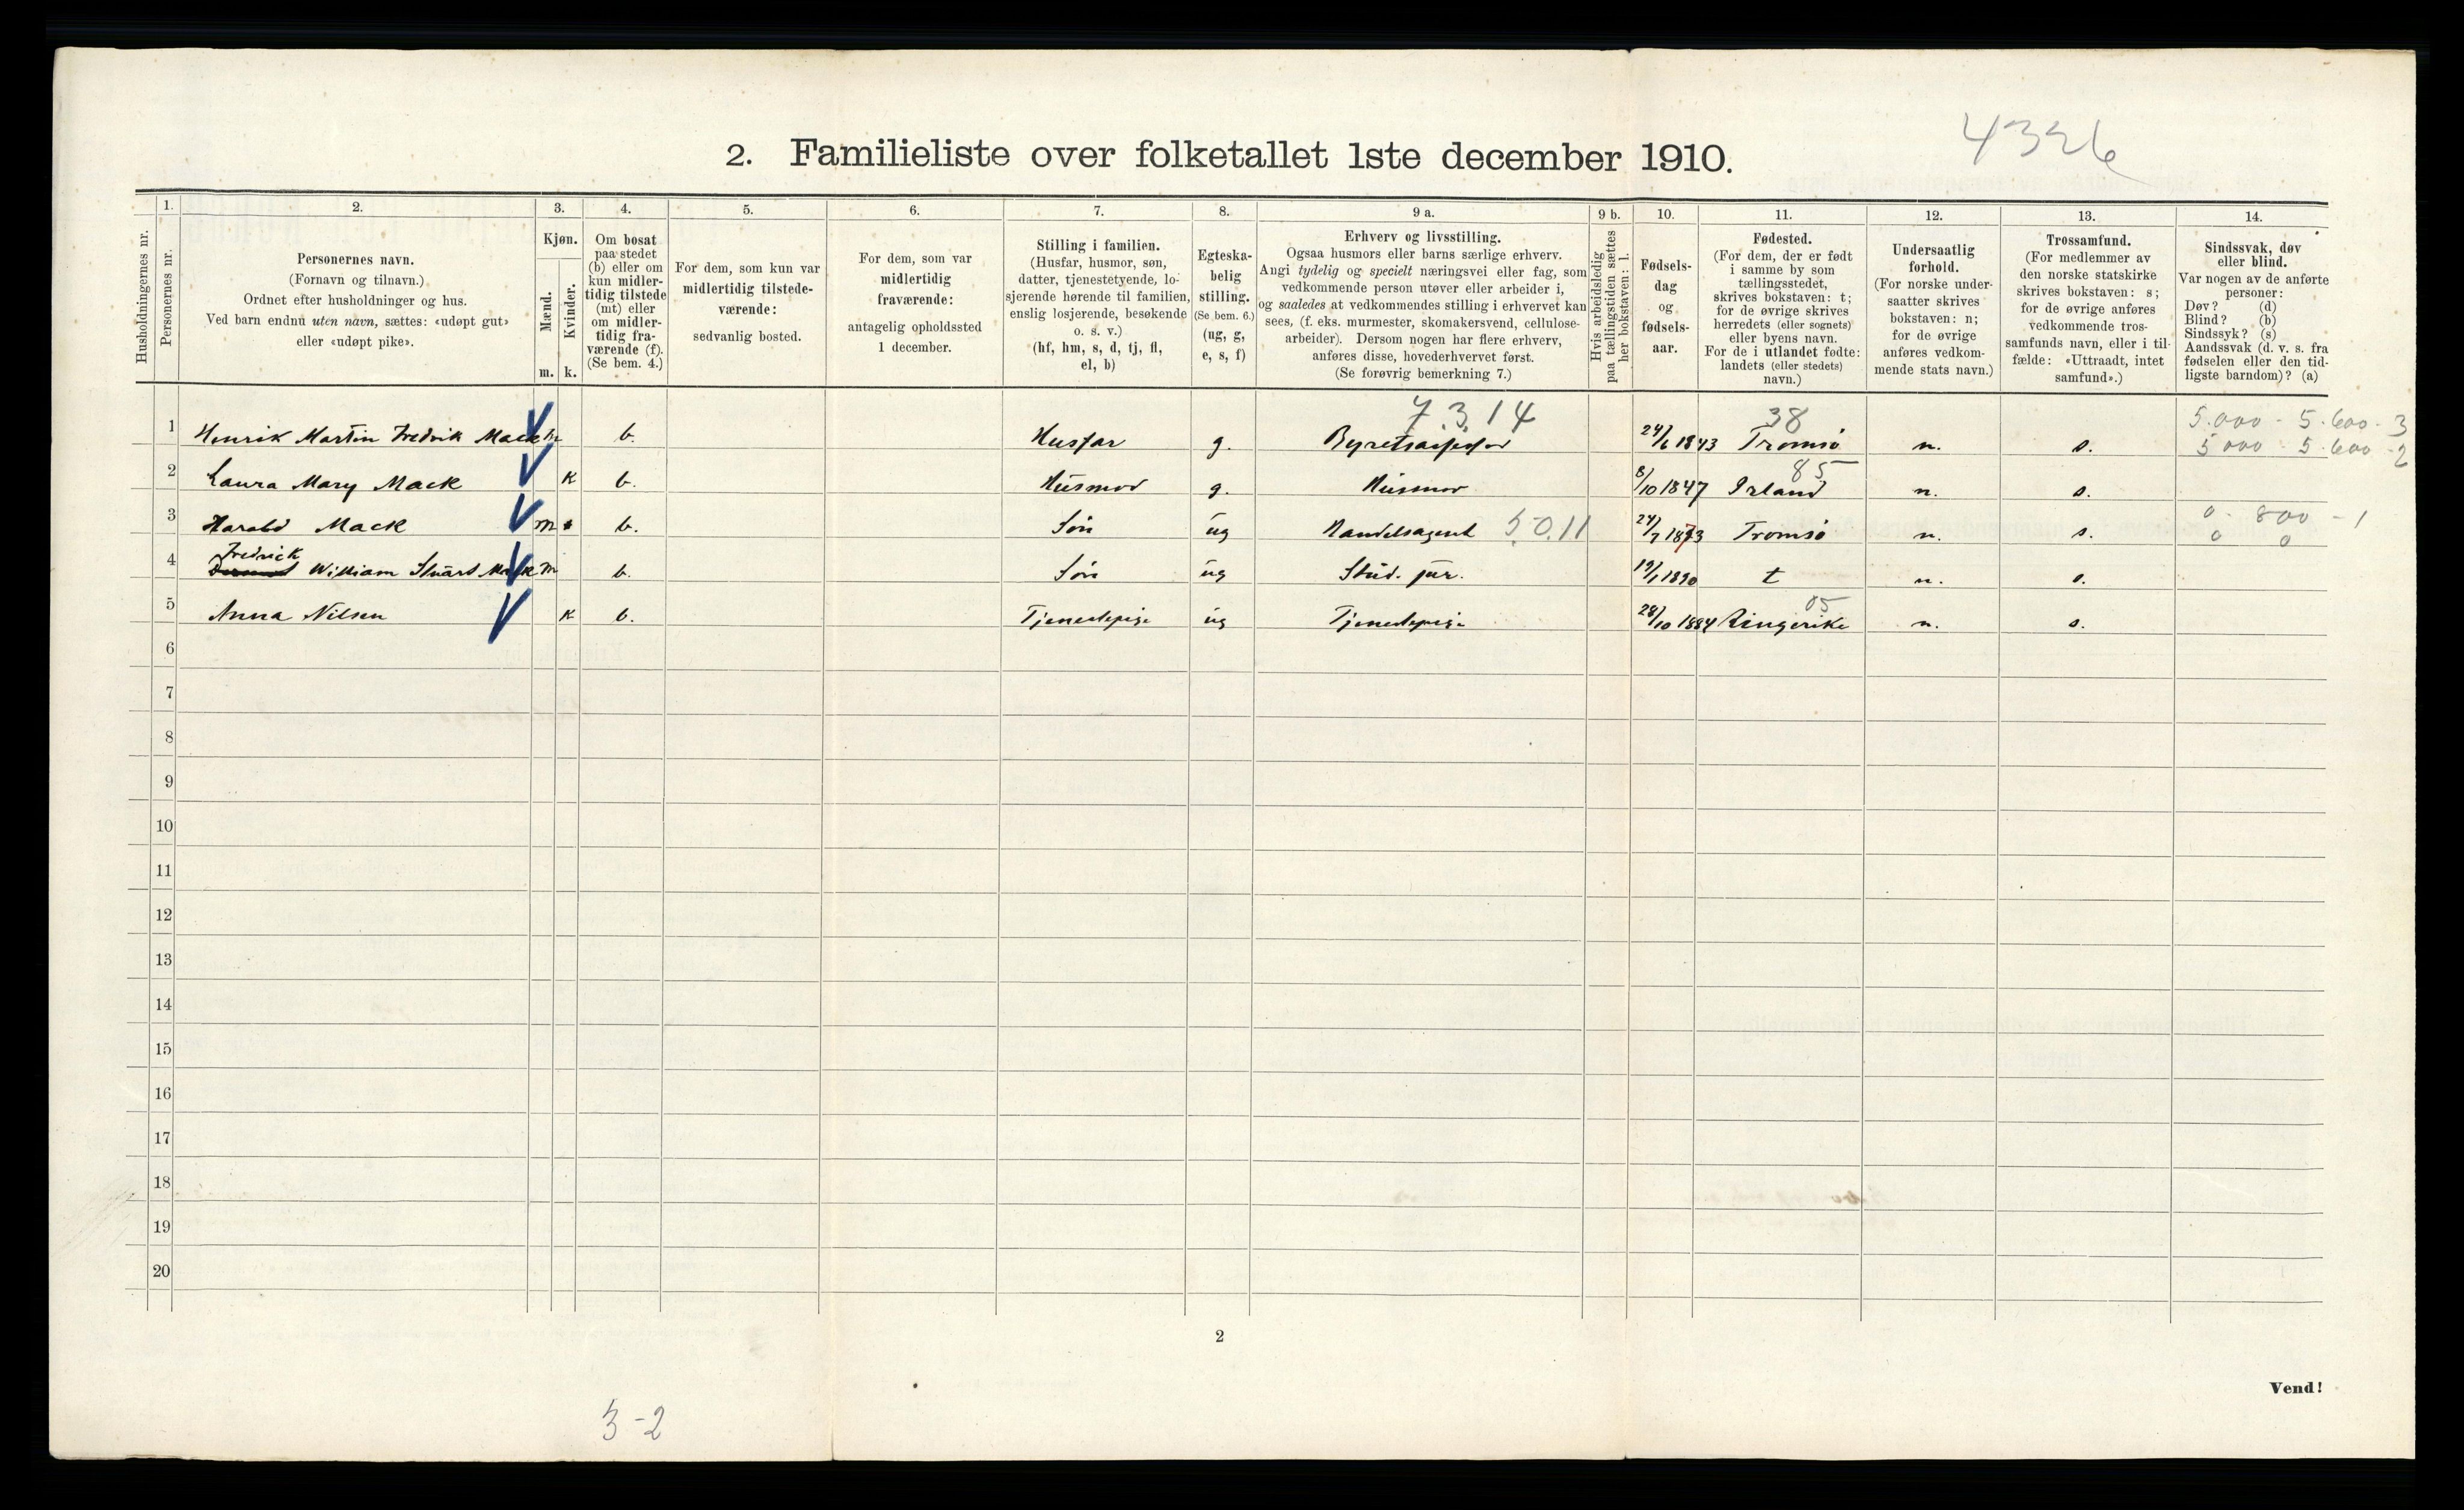 4326
2. Familieliste over folketallet 1ste december 1910.
Husholdningernes nr.
1. Personernes nr.
2. Personernes navn.
(Fornavn og tilnavn.)
Ordnet efter husholdninger og hus.
Ved barn endnu uten navn, sættes: «udøpt gut»
eller «udøpt pike».
3. Kjøn.
Mænd. m.
Kvinder. k.
4. Om bosat
paa stedet
(b) eller om
kun midler-
tidig tilstede
(mt) eller
om midler-
tidig fra-
værende (f).
(Se bem. 4.)
5. For dem, som kun var
midlertidig tilstede-
værende:
sedvanlig bosted.
6. For dem, som var
midlertidig
fraværende:
antagelig opholdssted
1 december.
7. Stilling i familien.
(Husfar, husmor, søn,
datter, tjenestetyende, lo-
sjerende hørende til familien,
enslig losjerende, besøkende
o. s. v.)
(hf, hm, s, d, tj, fl,
el, b)
8. Egteska-
belig
stilling.
(Se bem. 6.)
(ug, g,
e, s, f)
9 a. Erhverv og livsstilling.
Ogsaa husmors eller barns særlige erhverv.
Angi tydelig og specielt næringsvei eller fag, som
vedkommende person utøver eller arbeider i,
og saaledes at vedkommendes stilling i erhvervet kan
sees, (f. eks. murmester, skomakersvend, cellulose-
arbeider). Dersom nogen har flere erhverv,
anføres disse, hovederhvervet først.
(Se forøvrig bemerkning 7.)
9 b. Hvis arbeidsledig
paa tællingstiden sættes
her bokstaven: l.
10. Fødsels-
dag
og
fødsels-
aar.
11. Fødested.
(For dem, der er født
i samme by som
tællingsstedet,
skrives bokstaven: t;
for de øvrige skrives
herredets (eller sognets)
eller byens navn.
For de i utlandet fødte:
landets (eller stedets)
navn.)
12. Undersaatlig
forhold.
(For norske under-
saatter skrives
bokstaven: n;
for de øvrige
anføres vedkom-
mende stats navn.)
13. Trossamfund.
(For medlemmer av
den norske statskirke
skrives bokstaven: s;
for de øvrige anføres
vedkommende tros-
samfunds navn, eller i til-
fælde: «Uttraadt, intet
samfund».)
14. Sindssvak, døv
eller blind.
Var nogen av de anførte
personer:
Døv? (d)
Blind? (b)
Sindssyk? (s)
Aandssvak (d. v. s. fra
fødselen eller den tid-
ligste barndom)? (a)
7.3.14 38 5.000 - 5.600 - 3
1 Henrik Martin Fredrik Mack m b. Husfar g. Byretsassessor 24/6 1843 Tromsø n. s. 5000 - 5.600 - 2
85
2 Laura Mary Mack k b. Husmor g. Husmor 8/10 1847 Irland n. s.
0 - 800 - 1
3 Harald Mack m b. Søn ug Handelsagent 5.0.11 24/7 1873 Tromsø n. s. 0 0
Fredrick
4 William Stuart Mack m b. Søn ug Stud. jur. 19/1 1890 t n. s.
05
5 Anna Nilsen k b. Tjenestepige ug Tjenestepige 28/10 1884 Ringerike n. s.
6
7
8
9
10
11
12
13
14
15
16
17
18
19
20
2
Vend!
3-2